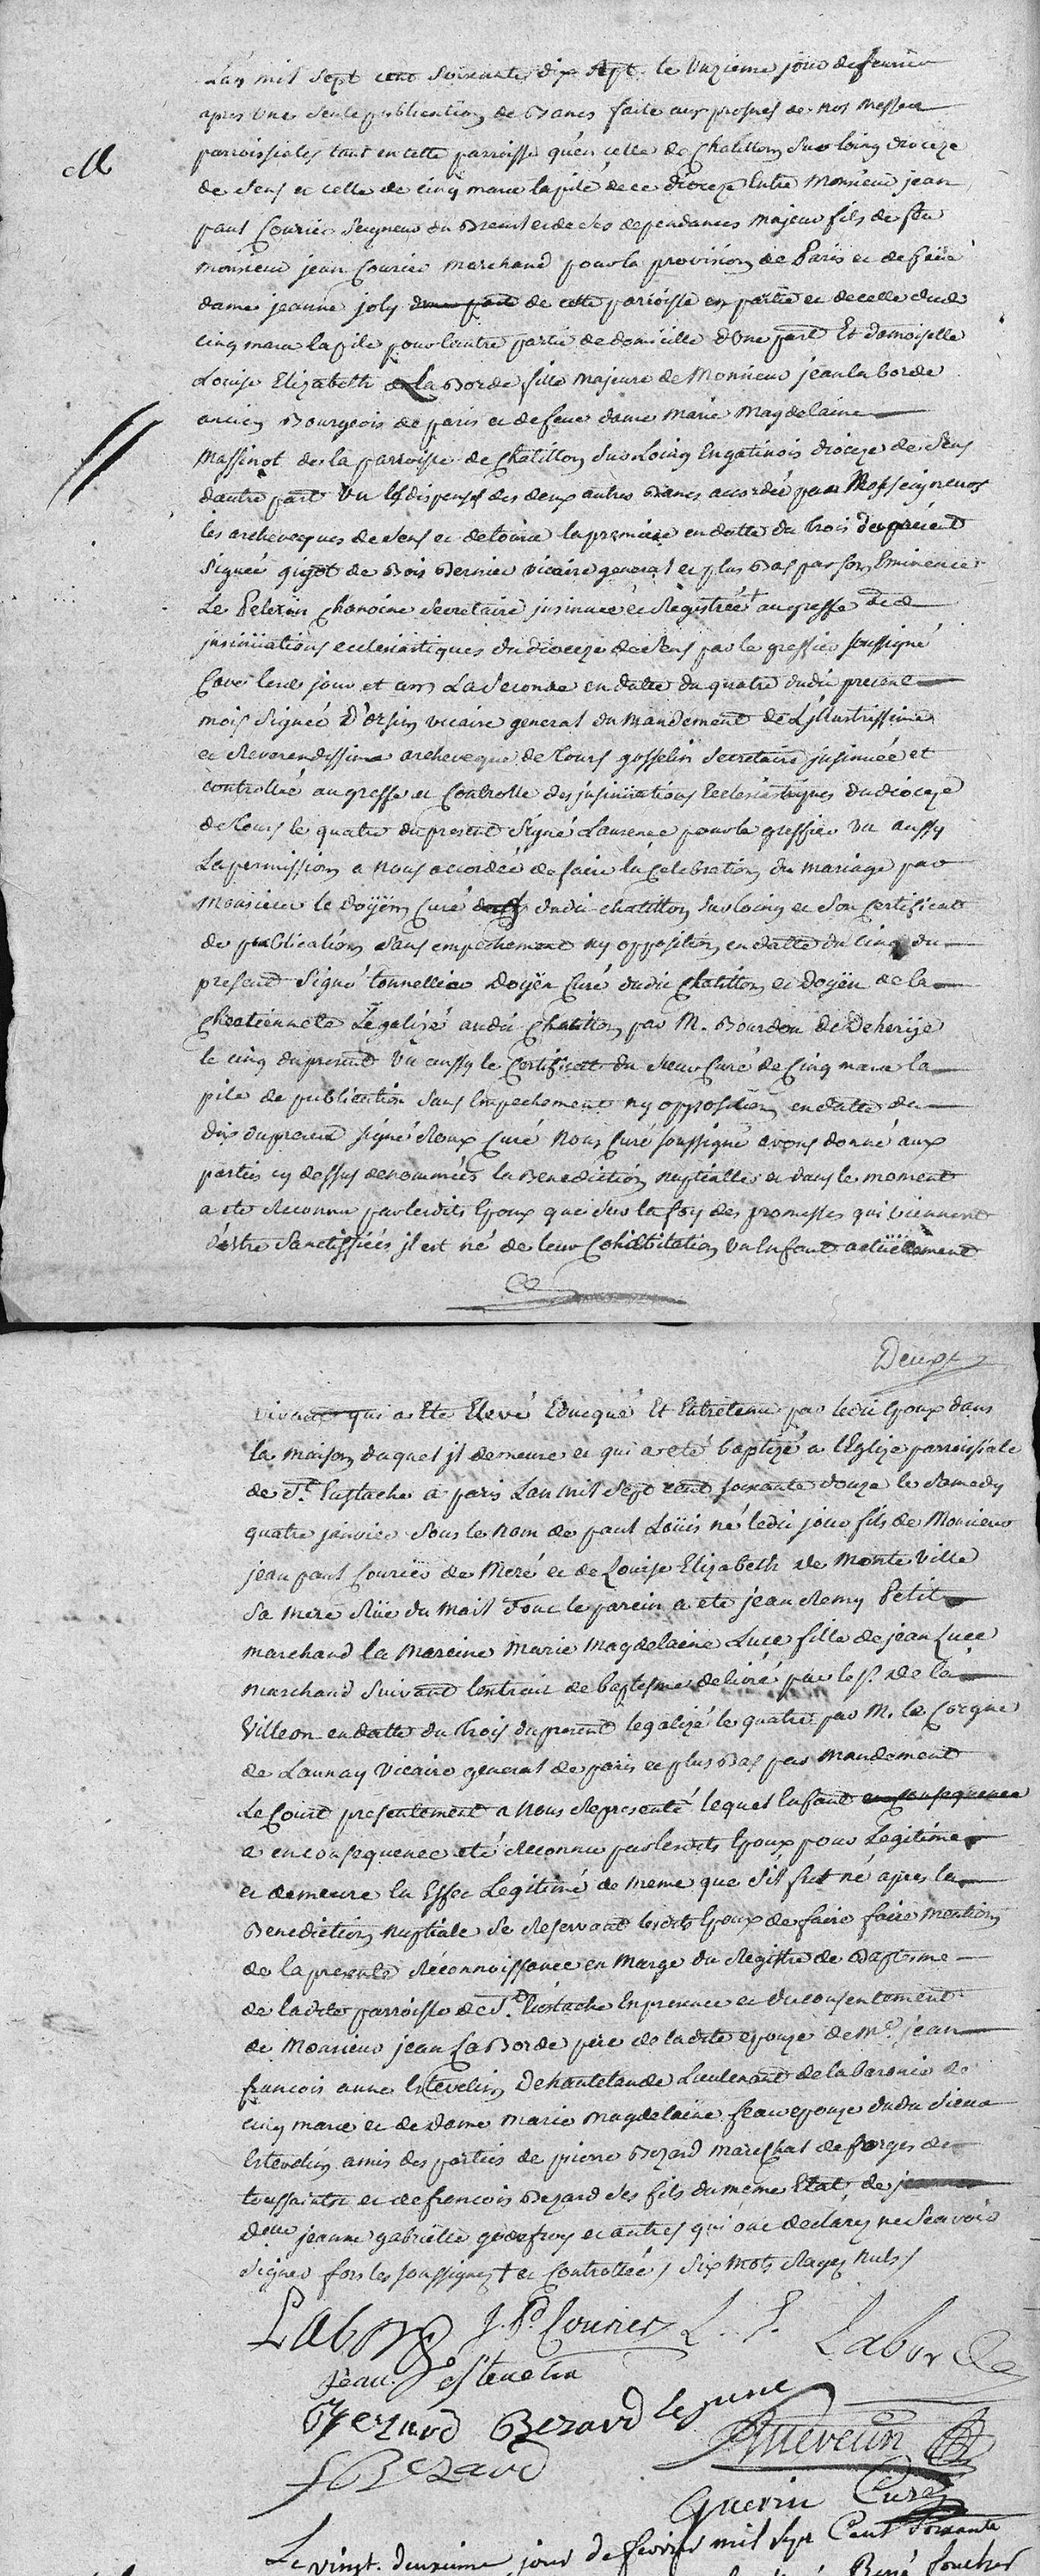 L'an mil sept cent soixante dix sept le unzieme jour de fevrier
apres une seule publication de Bancs faite aux prosnes de nos messes
parroissiales tant en cette parroisse qu'en celle de Chatillon sur loing dioceze
de Sens et celle de cinq mars la pile de ce dioceze Entre Monsieur jean
paul Courier Seigneur du Breuil et de ses dependances majeur fils de feu
monsieur jean Courier marchand pour la provision de Paris et de feüe
dame jeanne joly de cette parroisse en partie et de celle dude
cinq mars la pile pour l'autre partie de domicille d'une part Et damoiselle
Louise Elizabeth de La Borde fille majeure de Monsieur jean la borde
ancien Bourgeois de paris et de feue dame Marie Magdelaine
Massinot de la parroisse de Chatillon sur Loing En gatinois dioceze de Sens
d'autre part Vu les dispenses des deux autres Bancs accordée par Messeigneurs
les archevecques de Sens et de tours la premiere en datte du trois du present
Signée gigot de Bois Bernier vicaire general et plus Bas par son Eminence
Le Pelerin Chanoine Secretaire jnsinuée et Registrée + au greffe des
jnsinüations ecclesiastiques du dioceze de Sens par le greffier soussigné
Cave lesd jour et an La Seconde en datte du quatre dudit present
mois Signée D'orsin vicaire general du Mandement de L'jllustrissime
et Reverendissime archeveque de Tours gosselin Secretaire jnsinuée et
controllée au greffe et Controlle des jnsinüations Ecclesiastiques du dioceze
de Tours le quatre du present Signé Laurence pour le greffier Vu aussy
La permission a nous accordée de faire la Celebration du mariage par
Monsieur le Doyen Curé dudit chatillon sur loing et Son Certificat
de publication Sans empechement ny opposition en datte du cinq du
present Signé tonnellier Doyen Curé dudit Chatillon et Doyen de la
Chretienneté Legalizé audit Chatillon par M. Bourdon de Deherije
le cinq du present Vu aussy le Certificat du sieur Curé de Cinq mars la
pile de publication Sans Empechement ny opposition en datte du
dix du present signé Roux Curé Nous Curé soussigné avons donné aux
parties cy dessus denommées la Benediction nuptialle et dans le moment
a eté Reconnu par lesdits Epoux que sur la foy des promesses qui viennent
d'estre Sanctiffiées jl est né de leur Cohabitation un Enfant actüelement
Deux
vivant qui a Eté Elevé Educqué Et Entretenu par ledit Epoux dans
la maison duquel jl demeure et qui a eté baptizé a l'Eglize parroissiale
de St Eustache a paris L'an mil Sept cent soixante douze le Samedy
quatre janvier Sous le nom de paul Loüis né ledit jour fils de Monsieur
jean paul Courier de Meré et de Louise Elizabeth de Monte Ville
Sa mere Rüe du mail dont le parein a eté jean Remy Petit
marchand la Mareine Marie Magdelaine Luce fille de jean Luce
marchand Suivant l'extrait de baptesme delivré par le Sr. de la
Villeon en datte du trois du present legalizé le quatre par M. le Corgne
de Launay Vicaire general de paris et plus Bas par Mandement
Le Court presentement a nous Representé lequel Enfant en consequence
a en consequence eté Reconnu par lesdits Epoux pour Legitime
et demeure En Effet Legitimé de meme que s'il fut né apres la
Benediction nuptiale Se Reservant lesdits Epoux de faire faire mention
de la presente Réconnoissance en Marge du Registre de Baptesme
de ladite parroisse de St. Eustache En presence et du consentement
de Monsieur jean La Borde pere de ladite epouze de Me. jean
francois anne Estevelin Dehautelande Lieutenant de la baronie de
cinq mars et de Dame Marie magdelaine feau epouze dudit Sieur
Estevelin amis des parties de pierre Bezard marechal de forges de
toussaintre et de francois Bezard ses fils du meme Etat de
Delle jeanne gabrielle godefroy et autres qui ont declarez ne Scavoir
Signer fors les soussignez + et Controllée / six mots Rayez nuls /
Laborde J. P. Courier L. E. Laborde
jean Estevelin
Bezard Bezard le june
f Bezard
Guerin Curé
Le vingt deuxieme jour de fevrier mil sept Cent soixante
René foucher